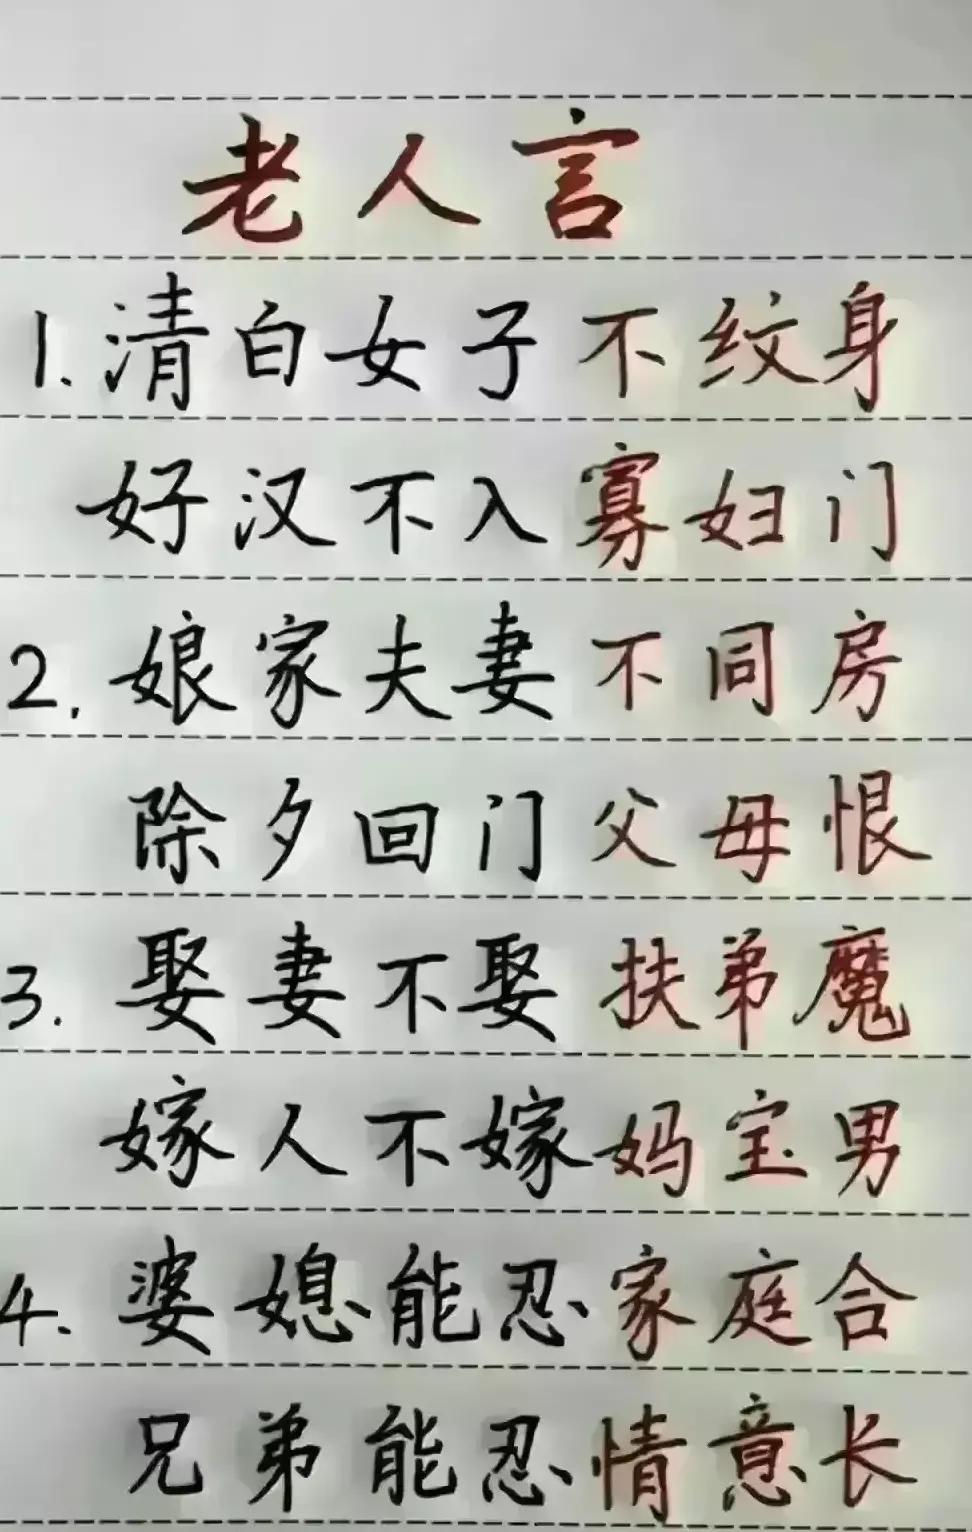 老人言
1.清白女子不纹身
好汉不入寡妇门
2.娘家夫妻不同房
除夕回门父母恨
3.娶妻不娶扶弟魔
嫁人不嫁妈宝男
4.婆媳能忍家庭合
兄弟能忍情意长